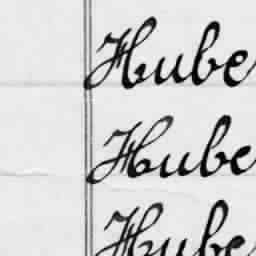 Hube
Hube
Hube